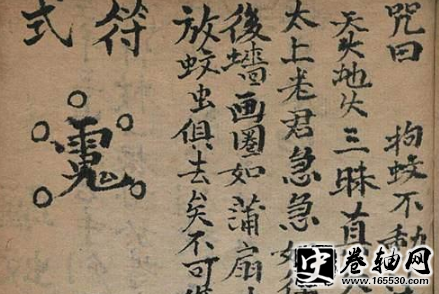 咒曰 拘蚊不動
天火地火三昧真
太上老君急急如
後墻画圈如蒲扇
放蚊虫俱去矣不可
符
式
卷轴网
www.165530.com